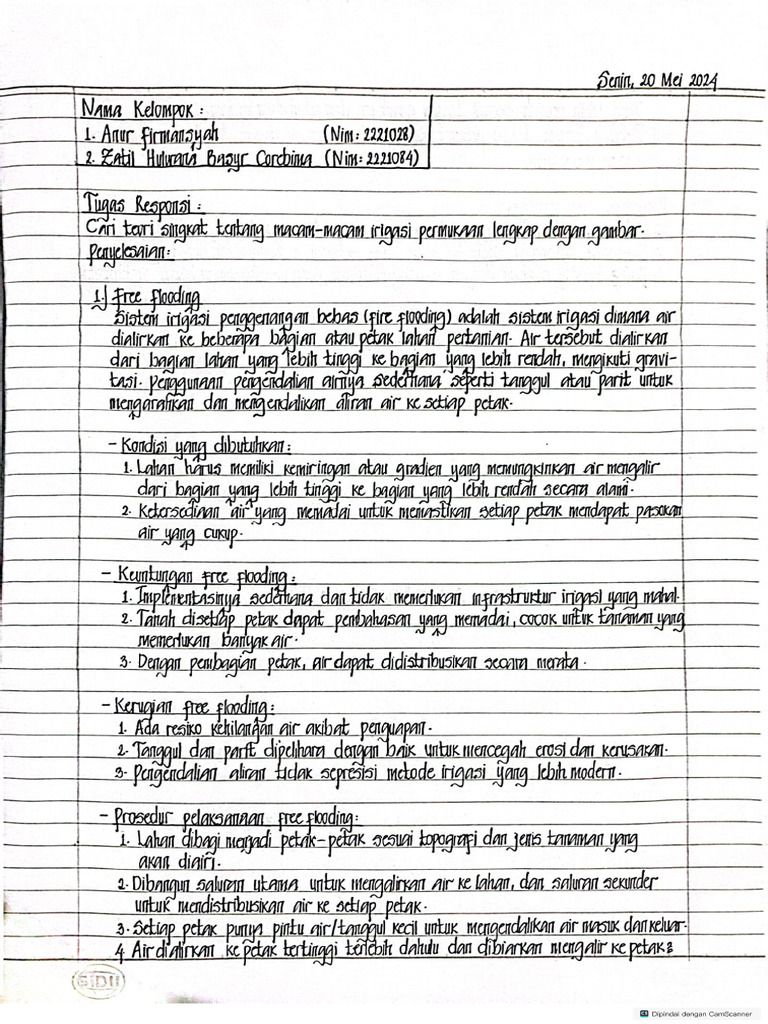 Senin, 20 Mei 2024
Nama Kelompok :
1. Anur Firmansyah (Nim: 2221028)
2. Zatil Huluranā Basyr Corebima (Nim: 2221084)
Tugas Responsi :
Cari teori singkat tentang macam-macam irigasi permukaan lengkap dengan gambar.
Penyelesaian:
1.) Free flooding
Sistem irigasi penggenangan bebas (fire flooding) adalah sistem irigasi dimana air
dialirkan ke beberapa bagian atau petak lahan pertanian. Air tersebut dialirkan
dari bagian lahan yang lebih tinggi ke bagian yang lebih rendah, mengikuti gravi-
tasi. Penggunaan pengendalian airnya sederhana seperti tanggul atau parit untuk
mengarahkan dan mengendalikan aliran air ke setiap petak.
- Kondisi yang dibutuhkan:
1. Lahan harus memiliki kemiringan atau gradien yang memungkinkan air mengalir
dari bagian yang lebih tinggi ke bagian yang lebih rendah secara alami.
2. Ketersediaan air yang memadai untuk memastikan setiap petak mendapat pasokan
air yang cukup.
- Keuntungan free flooding:
1. Implementasinya sederhana dan tidak memerlukan infrastruktur irigasi yang mahal.
2. Tanah disetiap petak dapat pembahasan yang memadai, cocok untuk tanaman yang
memerlukan banyak air.
3. Dengan pembagian petak, air dapat didistribusikan secara merata.
- Kerugian free flooding:
1. Ada resiko kehilangan air akibat penguapan.
2. Tanggul dan parit dipelihara dengan baik untuk mencegah erosi dan kerusakan.
3. Pengendalian aliran tidak sepresisi metode irigasi yang lebih modern.
- Prosedur pelaksanaan free flooding:
1. Lahan dibagi menjadi petak-petak sesuai topografi dan jenis tanaman yang
akan diairi.
2. Dibangun saluran utama untuk mengalirkan air ke lahan, dan saluran sekunder
untuk mendistribusikan air ke setiap petak.
3. Setiap petak punya pintu air/tanggul kecil untuk mengendalikan air masuk dan keluar.
4. Air dialirkan ke petak tertinggi terlebih dahulu dan dibiarkan mengalir ke petak2
SIDU
CS Dipindai dengan CamScanner